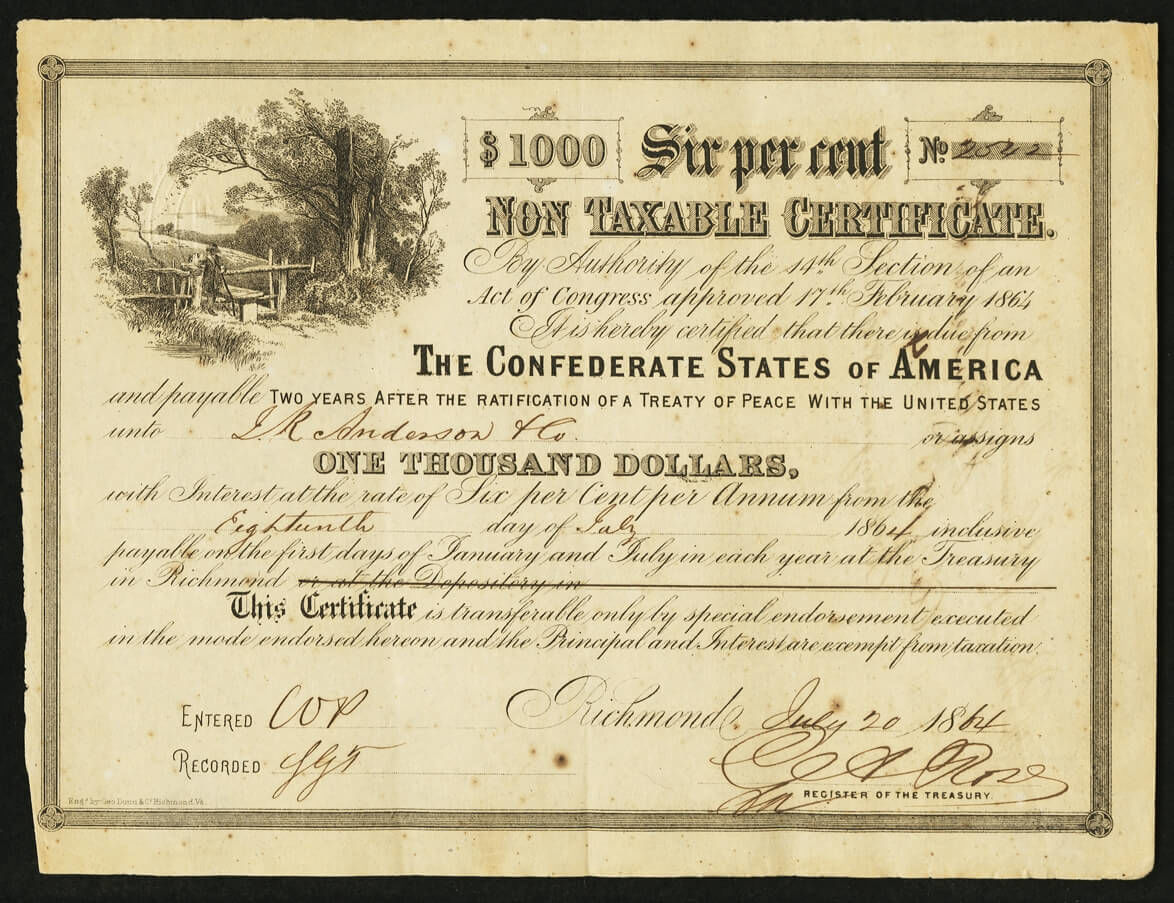 $ 1000 Six per cent No 2522
NON TAXABLE CERTIFICATE.
By Authority of the 14th Section of an
Act of Congress approved 17th February 1864
It is hereby certified that there is due from
THE CONFEDERATE STATES OF AMERICA
and payable TWO YEARS AFTER THE RATIFICATION OF A TREATY OF PEACE WITH THE UNITED STATES
unto J R Anderson & Co. or assigns
ONE THOUSAND DOLLARS,
with Interest at the rate of Six per Cent per Annum from the
Eighteenth day of July 1864 inclusive
payable on the first days of January and July in each year at the Treasury
in Richmond or at the Depository in
This Certificate is transferable only by special endorsement executed
in the mode endorsed hereon and the Principal and Interest are exempt from taxation.
Richmond July 20 1864
ENTERED
RECORDED
REGISTER OF THE TREASURY.
Engd. by Geo Dunn & Co Richmond, Va.